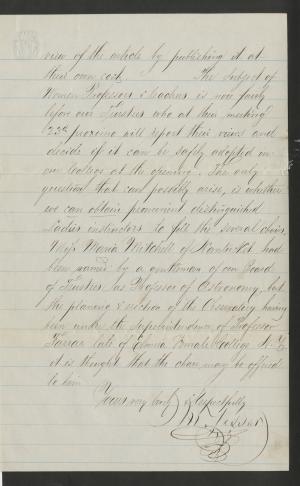 view of the article by publishing it at
their own cost. The subject of
Women Professors & teachers is now fairly
before our Trustees who at their meeting
23d proximo will report their views and
decide if it can be safely adopted in
our College at the opening. The only
question that can possibly arise, is whether
we can obtain prominent distinguished
Ladies instructors to fill the several chairs,
Miss Maria Mitchell of Nantucket had
been named by a gentleman of our Board
of Trustees as Professor of Astronomy, but
the planning & erection of the Observatory having
been under the Superintendence of Professor
Farrar late of Elmira Female College N.Y.
it is thought that the chair may be offered
to him.
Yours very truly & respectfully
M. Vassar